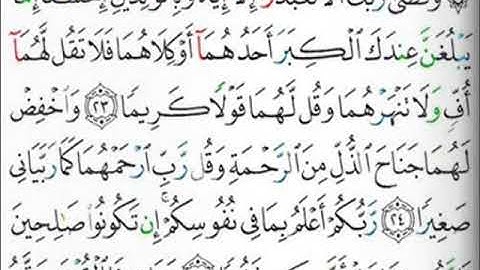 وَقَضَىٰ رَبُّكَ أَلَّا تَعْبُدُوٓا۟ إِلَّآ إِيَّاهُ وَبِٱلْوَٰلِدَيْنِ إِحْسَٰنًا ۚ إِمَّا
يَبْلُغَنَّ عِندَكَ ٱلْكِبَرَ أَحَدُهُمَآ أَوْ كِلَاهُمَا فَلَا تَقُل لَّهُمَآ
أُفٍّ وَلَا تَنْهَرْهُمَا وَقُل لَّهُمَا قَوْلًا كَرِيمًا ٢٣ وَٱخْفِضْ
لَهُمَا جَنَاحَ ٱلذُّلِّ مِنَ ٱلرَّحْمَةِ وَقُل رَّبِّ ٱرْحَمْهُمَا كَمَا رَبَّيَانِى
صَغِيرًا ٢٤ رَّبُّكُمْ أَعْلَمُ بِمَا فِى نُفُوسِكُمْ ۚ إِن تَكُونُوا۟ صَٰلِحِينَ